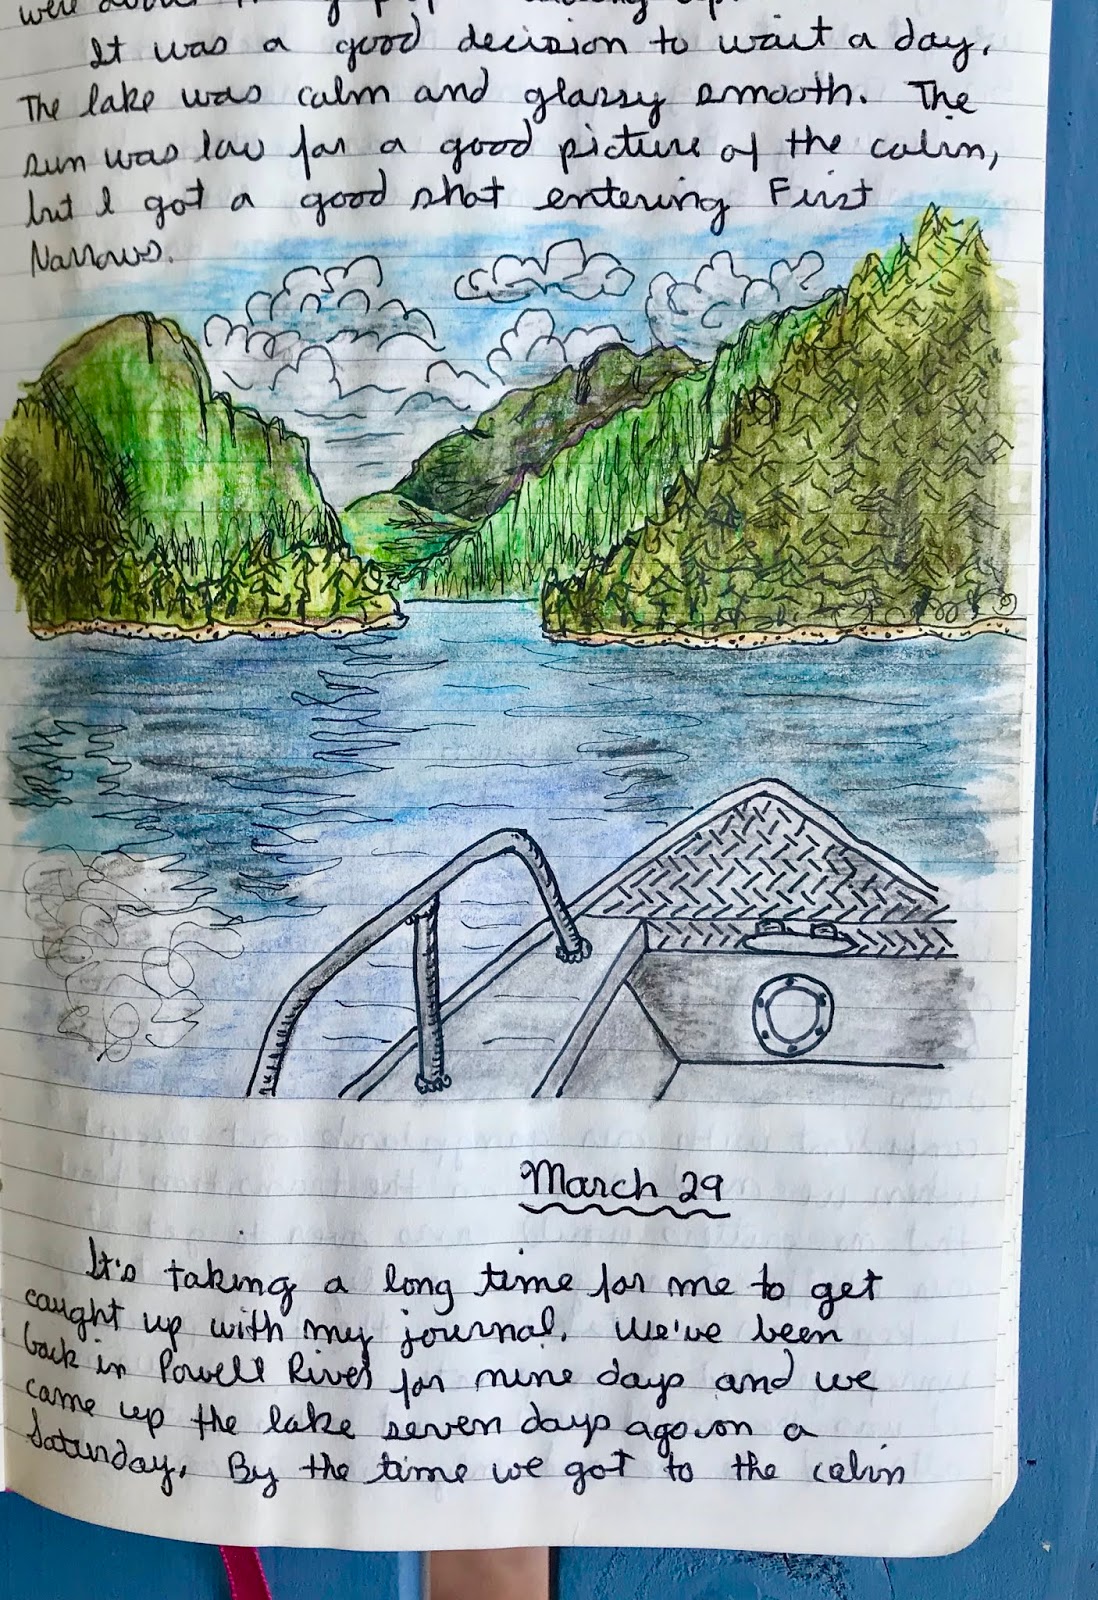 were
It was a good decision to wait a day.
The lake was calm and glassy smooth. The
sun was low for a good picture of the cabin,
but I got a good shot entering First
Narrows.
March 29
It's taking a long time for me to get
caught up with my journal. We've been
back in Powell River for nine days and we
came up the lake seven days ago on a
Saturday. By the time we got to the cabin